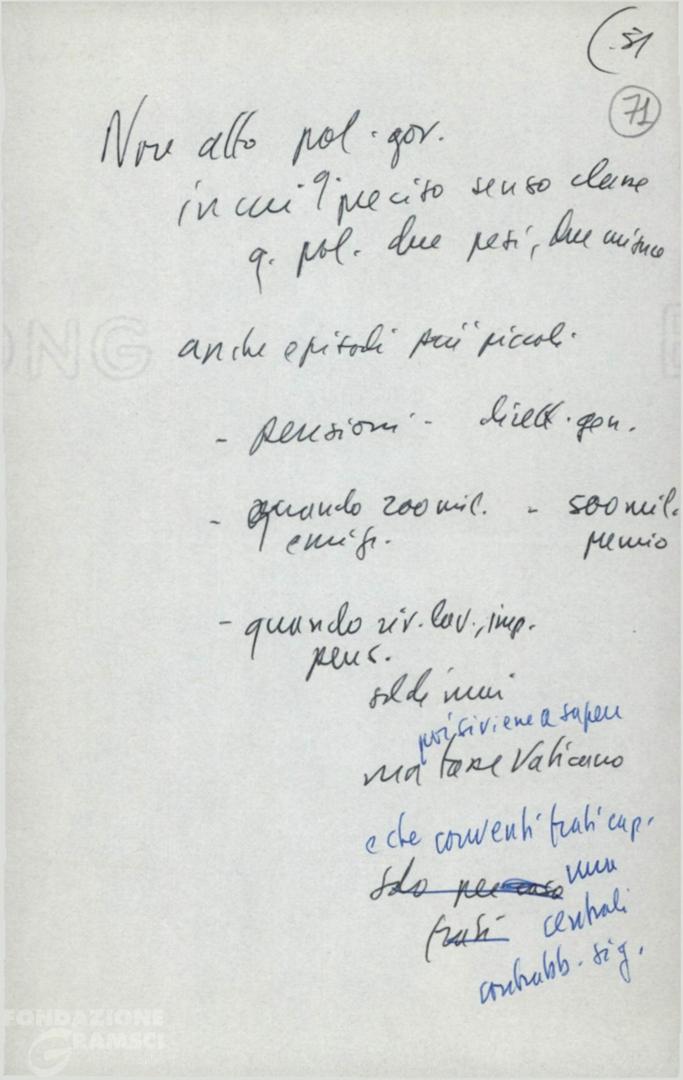 (51
71
Non atto pol. gov.
in cui preciso senso classe
q. pol. due pesi, due misure
anche episodi più piccoli
- pensioni - dirett. gen.
- quando 200 mil. - 500 mil.
emigr. premio
- quando riv. lav., imp.
pens.
soldi
poi si viene a sapere
ma tasse Vaticano
e che conventi frati cap.
solo per caso
frati centrali
contrabb. sig.
ONG
FONDAZIONE
GRAMSCI